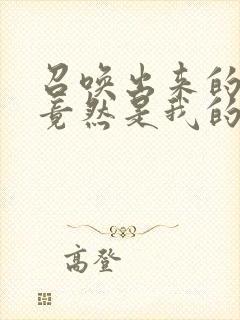 召唤出来的
竟然是我的
高登